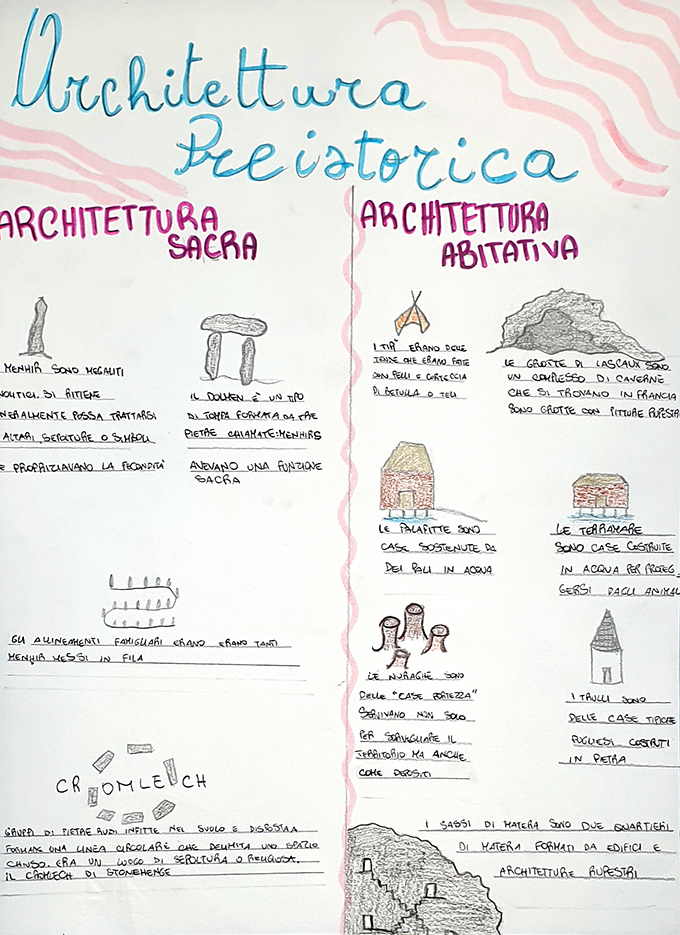 Architettura
Preistorica
ARCHITETTURA
SACRA
MENHIR SONO MEGALITI
NOLITICI. SI RITIENE
NERALMENTE POSSA TRATTARSI
ALTARI, SEPOLTURE O SIMBOLI
E PROPRIZIAVANO LA FECONDITÀ
IL DOLMEN E' UN TIPO
DI TOMBA FORMATA DA TRE
PIETRE CHIAMATE: MENHIRS
AVEVANO UNA FUNZIONE
SACRA
GLI ALLINEAMENTI FAMIGLIARI ERANO ERANO TANTI
MENHIR MESSI IN FILA
CROMLECH
GRUPPI DI PIETRE RUDI INFITTE NEL SUOLO E DISPOSTA A
FORMARE UNA LINEA CIRCOLARE CHE DELIMITA UNO SPAZIO
CHIUSO. ERA UN LUOGO DI SEPOLTURA O RELIGIOSA.
IL CROMLECH DI STONEHENGE
ARCHITETTURA
ABITATIVA
I TIPÌ ERANO DELLE
TENDE CHE ERANO FATE
CON PELLI E CORTECCIA
DI BETULLA O TELI
LE GROTTE DI LASCAUX SONO
UN COMPLESSO DI CAVERNE
CHE SI TROVANO IN FRANCIA
SONO GROTTE CON PITTURE RUPESTRI
LE PALAFITTE SONO
CASE SOSTENUTE DA
DEI PALI IN ACQUA
LE TERRAMARE
SONO CASE COSTRUITE
IN ACQUA PER PROTEG
GERSI DAGLI ANIMAL
LE NURAGHE SONO
DELLE "CASE FORTEZZA"
SERVIVANO NON SOLO
PER SORVEGLIARE IL
TERRITORIO MA ANCHE
COME DEPOSITI
I TRULLI SONO
DELLE CASE TIPICHE
PUGLIESI COSTRUITI
IN PIETRA
I SASSI DI MATERA SONO DUE QUARTIERI
DI MATERA FORMATI DA EDIFICI E
ARCHITETTURE RUPESTRI